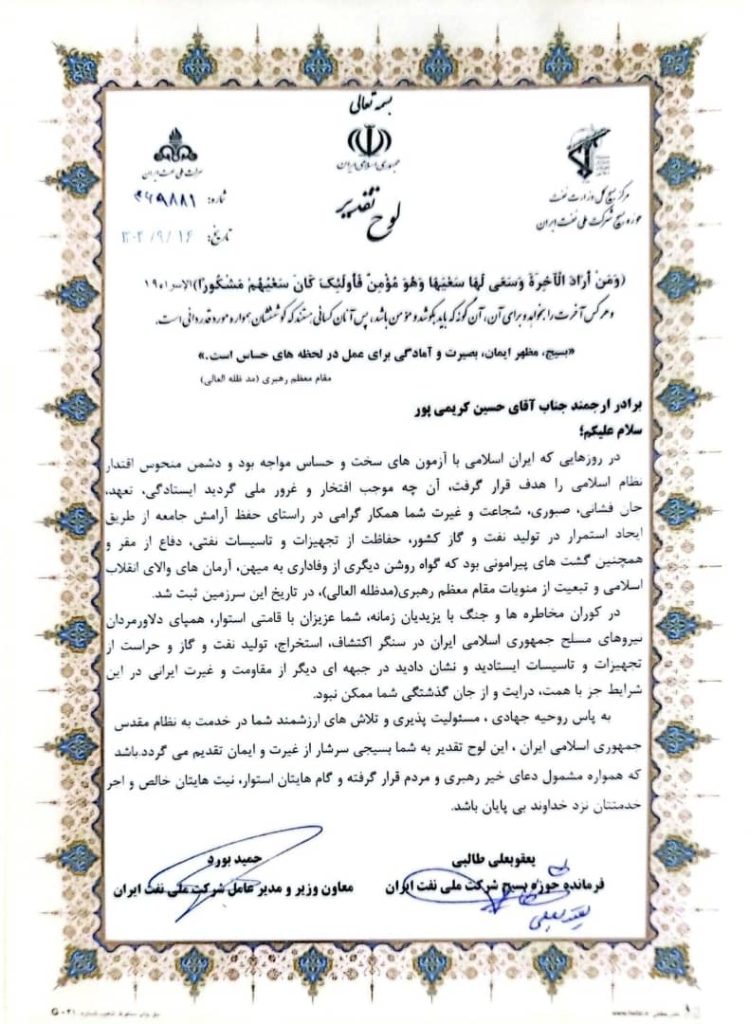 بسمه تعالی
جمهوری اسلامی ایران
شرکت ملی نفت ایران
مرکز بسیج کل وزارت نفت
حوزه بسیج شرکت ملی نفت ایران
لوح تقدیر
شماره:
تاریخ:
(وَمَنْ أَرَادَ الْآخِرَةَ وَسَعَى لَهَا سَعْيَهَا وَهُوَ مُؤْمِنٌ فَأُولَئِكَ كَانَ سَعْيُهُمْ مَشْكُورًا)الاسراء۱۹
و هر کس آخرت را بخواهد و برای آن، آن گونه که باید بکوشد و مؤمن باشد، پس آنان کسانی هستند که کوششان همواره مورد قدردانی است.
«بسیج، مظهر ایمان، بصیرت و آمادگی برای عمل در لحظه های حساس است.»
مقام معظم رهبری (مد ظله العالی)
برادر ارجمند جناب آقای حسین کریمی پور
سلام علیکم؛
در روزهایی که ایران اسلامی با آزمون های سخت و حساس مواجه بود و دشمن منحوس اقتدار
نظام اسلامی را هدف قرار گرفت، آن چه موجب افتخار و غرور ملی گردید ایستادگی، تعهد،
جان فشانی، صبوری، شجاعت و غیرت شما همکار گرامی در راستای حفظ آرامش جامعه از طریق
ایجاد استمرار در تولید نفت و گاز کشور، حفاظت از تجهیزات و تاسیسات نفتی، دفاع از مقر و
همچنین گشت های پیرامونی بود که گواه روشن دیگری از وفاداری به میهن، آرمان های والای انقلاب
اسلامی و تبعیت از منویات مقام معظم رهبری(مدظله العالی)، در تاریخ این سرزمین ثبت شد.
در کوران مخاطره ها و جنگ با یزیدیان زمانه، شما عزیزان با قامتی استوار، همپای دلاورمردان
نیروهای مسلح جمهوری اسلامی ایران در سنگر اکتشاف، استخراج، تولید نفت و گاز و حراست از
تجهیزات و تاسیسات ایستادید و نشان دادید در جبهه ای دیگر از مقاومت و غیرت ایرانی در این
شرایط جز با همت، درایت و از جان گذشتگی شما ممکن نبود.
به پاس روحیه جهادی ، مسئولیت پذیری و تلاش های ارزشمند شما در خدمت به نظام مقدس
جمهوری اسلامی ایران ، این لوح تقدیر به شما بسیجی سرشار از غیرت و ایمان تقدیم می گردد.باشد
که همواره مشمول دعای خیر رهبری و مردم قرار گرفته و گام هایتان استوار، نیت هایتان خالص و اجر
خدمتتان نزد خداوند بی پایان باشد.
یعقوبعلی طالبی
فرمانده حوزه بسیج شرکت ملی نفت ایران
حمید بورد
معاون وزیر و مدیر عامل شرکت ملی نفت ایران